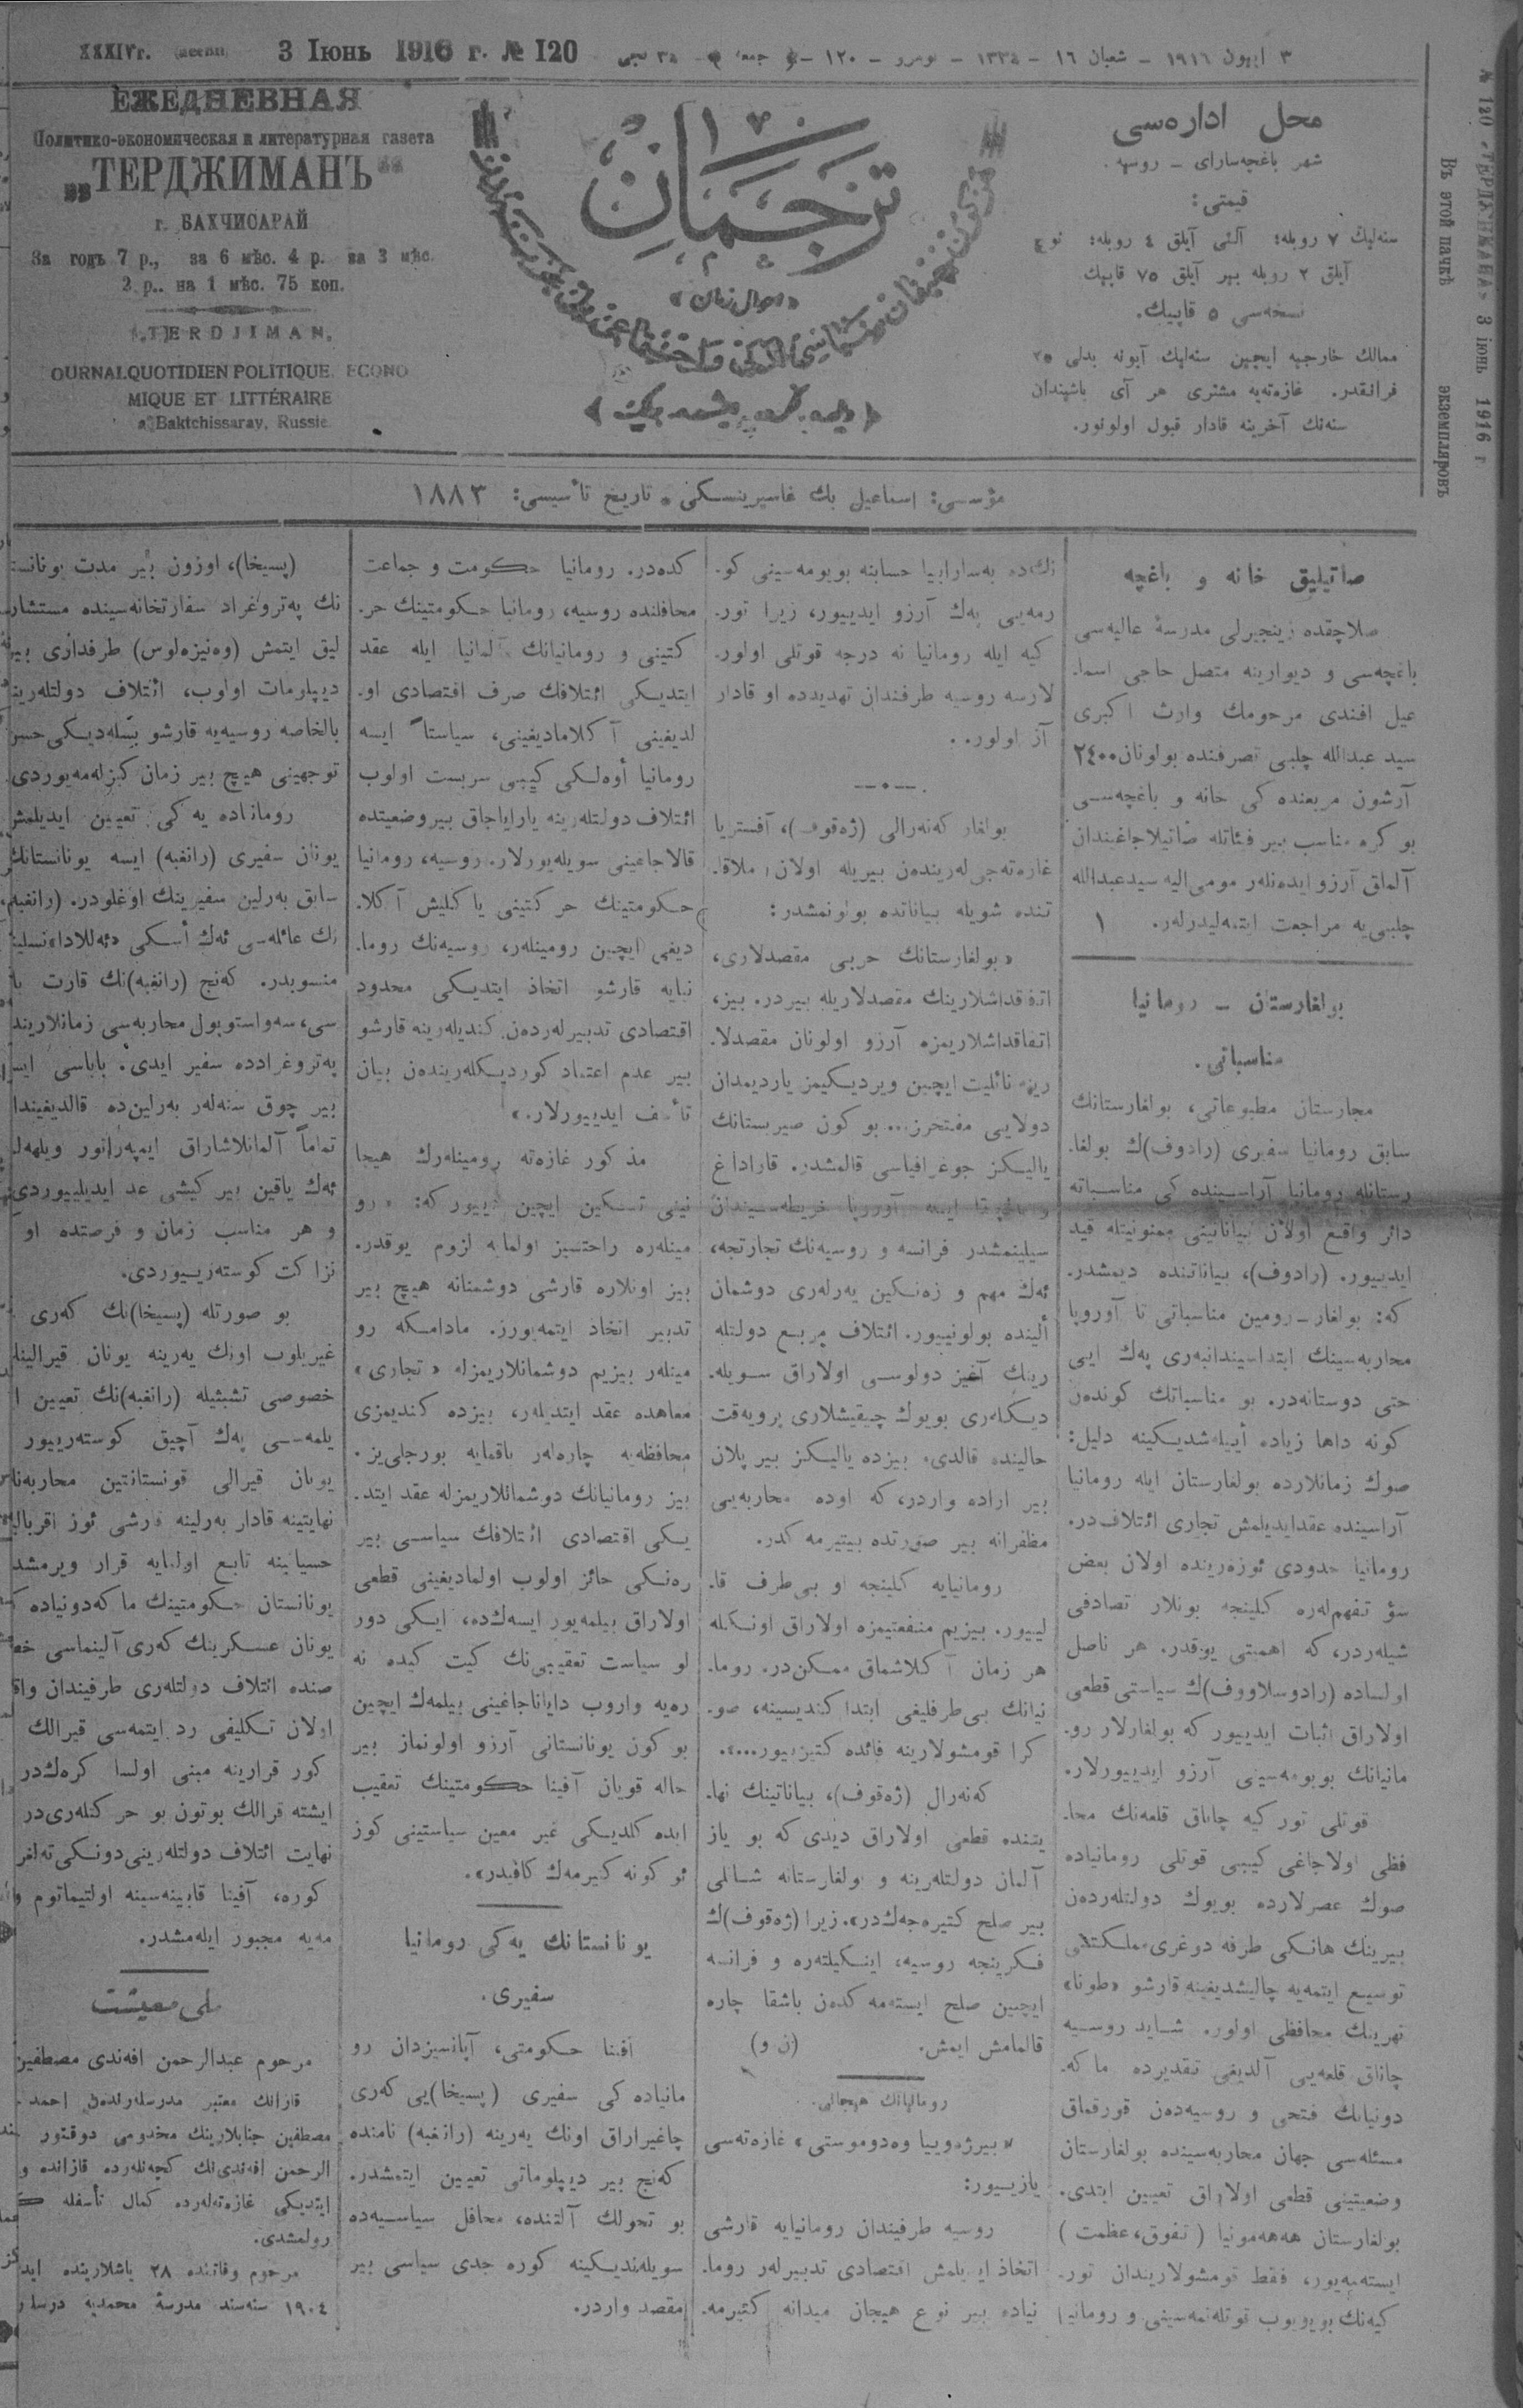 XXXIVг. 3 Іюнь 1916 г. № 120
٣ اییون ١٩١٦ – شعبان ١٦ – ١٣٣٤ – نومرو – ١٢٠ – جمعه
ЕЖЕДНЕВНАЯ
Политико-экономическая и литературная газета
„ТЕРДЖИМАНЪ“
г. БАХЧИСАРАЙ
За годъ 7 р., за 6 мѣс. 4 р. за 3 мѣс.
2 р.. на 1 мѣс. 75 коп.
„TERDJIMAN„
OURNAL QUOTIDIEN POLITIQUE. ECONO
MIQUE ET LITTÉRAIRE
a Baktchissaray, Russie.
ترجمان
«احوال زمان»
«دیلده، فکرده، ایشده بیرلیك»
محل اداره‌سی
شهر باغچه‌سارای – روسیه.
قیمتی:
سنه‌لیك ٧ روبله؛ آلتی آیلق ٤ روبله؛ ئوچ
آیلق ٢ روبله بیر آیلق ٧٥ قاپیك
نسخه‌سی ٥ قاپیك.
ممالك خارجیه ایچین سنه‌لیك آبونه بدلی ٢٥
فرانقدر. غازه‌ته‌یه مشتری هر آی باشیندان
سنه‌نك آخرینه قادار قبول اولونور.
№ 120 «ТЕРДЖИМАНА» 3 іюнь 1916 г
Въ этой пачкѣ экземпляровъ
مؤسسی: اسماعیل بك غاسپرینسكی • تاریخ تأسیسی: ١٨٨٣
صاتیلیق خانه و باغچه
صلاچقده زینجیرلی مدرسهٔ عالیه‌سی
باغچه‌سی و دیوارینه متصل حاجی اسما-
عیل افندی مرحومك وارث اكبری
سید عبدالله چلبی تصرفنده بولونان ٢٤٠٠
آرشون مربعنده كی خانه و باغچه‌سی
بو كره مناسب بیر فئاتله صاتیلاجاغیندان
آلماق آرزو ایده‌نله‌ر مومی الیه سید عبدالله
چلبی‌یه مراجعت ایتمه‌لیدرله‌ر. ١
بولغارستان – رومانیا
مناسباتی.
مجارستان مطبوعاتی، بولغارستانك
سابق رومانیا سفیری (رادوف)ك بولغا-
رستانله رومانیا آراسینده كی مناسباته
دائر واقع اولان بیاناتینی ممنونیتله قید
ایدییور. (رادوف)، بیاناتنده دیمشدر.
كه: بولغار-رومین مناسباتی تا آوروپا
محاربه‌سینك ابتداسیندانبه‌ری پەك ایی
حتی دوستانه‌در. بو مناسباتك كوندەن
كونه داها زیاده أییله‌شدیكینه دلیل:
صوك زمانلارده بولغارستان ایله رومانیا
آراسینده عقدایدیلمش تجاری ائتلاف‌در.
رومانیا حدودی ئوزه‌رینده اولان بعض
سؤ تفهم‌له‌ره كلینجه بونلار تصادفی
شیله‌ردر، كه اهمیتی یوقدر. هر ناصل
اولساده (رادوسلاووف)ك سیاستی قطعی
اولاراق اثبات ایدییور كه بولغارلار رو-
مانیانك بویومه‌سینی آرزو ایدییورلار.
قوتلی توركیه چاناق قلعه‌نك محا-
فظی اولاجاغی كیبی قوتلی رومانیاده
صوك عصرلارده بویوك دولتله‌ردەن
بیرینك هانكی طرفه دوغری مملكتنی
توسیع ایتمه‌یه چالیشدیغینه قارشو «طونا»
نهرینك محافظی اولور. شاید روسیه
چاناق قلعه‌یی آلدیغی تقدیرده ماكه-
دونیانك فتحی و روسیه‌دەن قورقماق
مسئله‌سی جهان محاربه‌سینده بولغارستان
وضعیتینی قطعی اولاراق تعیین ایتدی.
بولغارستان هەهەمونیا (تفوق، عظمت)
ایسته‌مه‌یور، فقط قومشولاریندان تور-
كیه‌نك بویویوب قوتله‌نمه‌سینی و رومانیا
نك‌ده بەسارابیا حسابنه بویومه‌سینی كو-
رمه‌یی پەك آرزو ایدییور، زیرا تور-
كیه ایله رومانیا نه درجه قوتلی اولور-
لارسه روسیه طرفندان تهدیدده او قادار
آز اولور.
بولغار كەنەرالی (ژه‌قوف)، آفستریا
غازەتەجی‌له‌ریندەن بیریله اولان ملاقا-
تنده شویله بیاناتده بولونمشدر:
«بولغارستانك حربی مقصدلاری،
اتفاقداشلارینك مقصدلاریله بیردر. بیز،
اتفاقداشلاریمزه آرزو اولونان مقصدلا-
رینه نائلیت ایچین ویردیكیمز یاردیمدان
دولایی مفتخرز... بو كون صیربستانك
یالیكز جوغرافیاسی قالمشدر. قاراداغ
ایسه آوروپا خریطه‌سیندان
سیلینمشدر فرانسه و روسیه‌نك تجارتجه،
ئەك مهم و زەنكین یەرلەری دوشمان
ألینده بولونییور. ائتلاف مربع دولتله
رینك آغیز دولوسی اولاراق سویله-
دیكله‌ری بویوك چیقیشلاری پرویه‌قت
حالینده قالدی. بیزده یالیكز بیر پلان
بیر اراده واردر، كه اوده محاربه‌یی
مظفرانه بیر صورتده بیتیرمه كدر.
رومانیایه كلینجه او بی‌طرف قا-
لییور. بیزیم منفعتیمزه اولاراق اونكله
هر زمان آكلاشماق ممكن‌در. روما-
نیانك بی‌طرفلیغی ابتدا كندیسینه، صو-
كرا قومشولارینه فائده كتیریییور....»
كەنەرال (ژەقوف)، بیاناتینك نها-
یتنده قطعی اولاراق دیدی كه بو یاز
آلمان دولتله‌رینه و بولغارستانه شانلی
بیر صلح كتیره‌جەك‌در». زیرا (ژەقوف)ك
فكرینجه روسیه، اینكیلتەره و فرانسه
ایچین صلح ایسته‌مه كدەن باشقا چاره
قالمامش ایمش. (ن و)
رومانیانك هیجانی.
«بیرژەویا وەدوموستی» غازەته‌سی
یازییور:
روسیه طرفیندان رومانیایه قارشی
اتخاذ ایدیلمش اقتصادی تدبیرلەر روما-
نیاده بیر نوع هیجان میدانه كتیرمه-
كده‌در. رومانیا حكومت و جماعت
محافلنده روسیه، رومانیا حكومتینك حر-
كتینی و رومانیانك آلمانیا ایله عقد
ایتدیكی ائتلافك صرف اقتصادی او-
لدیغینی آكلامادیغینی، سیاستاً ایسه
رومانیا أوەلكی كیبی سربست اولوب
ائتلاف دولتله‌رینه یارایاجاق بیر وضعیتده
قالاجاغینی سویله‌یورلار. روسیه، رومانیا
حكومتینك حركتینی یاكلیش آكلا-
دیغی ایچین رومینلەر، روسیه‌نك روما-
نیایه قارشو اتخاذ ایتدیكی محدود
اقتصادی تدبیرلەردەن كندیله‌رینه قارشو
بیر عدم اعتماد كوردیكله‌ریندەن بیان
تأسف ایدییورلار.»
مذكور غازەته رومینلەرك هیجا
نینی تسكین ایچین دییور كه: «رو
مینلەره راحتسیز اولمایه لزوم یوقدر.
بیز اونلاره قارشی دوشمنانه هیچ بیر
تدبیر اتخاذ ایتمه‌یورز. مادامكه رو
مینلەر بیزیم دوشمانلاریمزله «تجاری»
معاهده عقد ایتدیلەر، بیزده كندیمزی
محافظه‌یه چارەلەر باقمایه بورجلی‌یز.
بیز رومانیانك دوشمانلاریمزله عقد ایتد-
یكی اقتصادی ائتلافك سیاسی بیر
رەنكی حائز اولوب اولمادیغینی قطعی
اولاراق بیلمه‌یور ایسەك‌ده، ایكی دور
لو سیاست تعقیبی‌نك كیت كیده نه
رەیه واروب دایاناجاغینی بیلمەك ایچین
بو كون یونانستانی آرزو اولونماز بیر
حاله قویان آفینا حكومتینك تعقیب
ایده كلدیكی غیر معین سیاستینی كوز
ئوكونه كتیرمەك كافیدر».
یونانستانك یەكی رومانیا
سفیری.
آفینا حكومتی، آپانسیزدان رو
مانیاده كی سفیری (پسیخا)یی كەری
چاغیراراق اونك یەرینه (رانغبه) نامنده
كەنج بیر دیپلوماتی تعیین ایتمشدر.
بو تحولك آلتنده، محافل سیاسیه‌ده
سویله‌ندیكینه كوره جدی سیاسی بیر
مقصد واردر.
(پسیخا)، اوزون بیر مدت یونانستا
نك پەتروغراد سفارتخانه‌سینده مستشار
لیق ایتمش (وەنیزەلوس) طرفداری بیر
دیپلومات اولوب، ائتلاف دولتله‌رینه
بالخاصه روسیه‌یه قارشو بسله‌دیكی حسن
توجهینی هیچ بیر زمان كیزله‌مه‌یوردی.
رومانیاده یەكی تعیین ایدیلمش
یونان سفیری (رانغبه) ایسه یونانستانك
سابق بەرلین سفیرینك اوغلودر. (رانغبه)
نك عائله‌سی ئەك أسكی
منسوبدر. كەنج (رانغبه)نك قارت با
سی، سەواستوپول محاربه‌سی زمانلارینده
پەتروغرادده سفیر ایدی. باباسی ایسه
بیر چوق سنه‌لەر بەرلین‌ده قالدیغیندان
تماماً آلمانلاشاراق ایمپەراتور ویلهەلم
ئەك یاقین بیر كیشی عد ایدیلییوردی
و هر مناسب زمان و فرصتده او
نزاكت كوستەرییوردی.
بو صورتله (پسیخا)نك كەری
اونك یەرینه یونان قیرالینك
خصوصی تشبثیله (رانغبه)نك تعیین ا
یلمه‌سی پەك آچیق كوستەرییور
یونان قیرالی قونستانتین محاربه‌نك
نهایتینه قادار بەرلینه قارشی ئوز اقربالیق
حسیاتینه تابع اولمایه قرار ویرمشدر
یونانستان حكومتینك ماكەدونیاده
یونان عسكرینك كەری آلینماسی خصو
صنده ائتلاف دولتله‌ری طرفیندان واقع
اولان تكلیفی رد ایتمه‌سی قیرالك
كور قرارینه مبنی اولسا كرەك‌در
ایشته قرالك بوتون بو حركتلەری‌در
نهایت ائتلاف دولتله‌رینی دونكی تەلغر
كوره، آفینا قابینه‌سینه اولتیماتوم و
مه‌یه مجبور ایله‌مشدر.
ملی معیشت
مرحوم عبدالرحمن افه‌ندی مصطفین
قازانك معتبر مدرسلەرندەن احمد
مصطفین جنابلارینك مخدومی دوقتور
الرحمن افەندی‌نك كچەنلەرده قازانده و
ایتدیكی غازەته‌لەرده كمال تأسفله
رولمشدی.
مرحوم وفاتنده ٢٨ یاشلارینده ایدی
١٩٠٤ سنه‌سند مدرسهٔ محمدیه درسلر